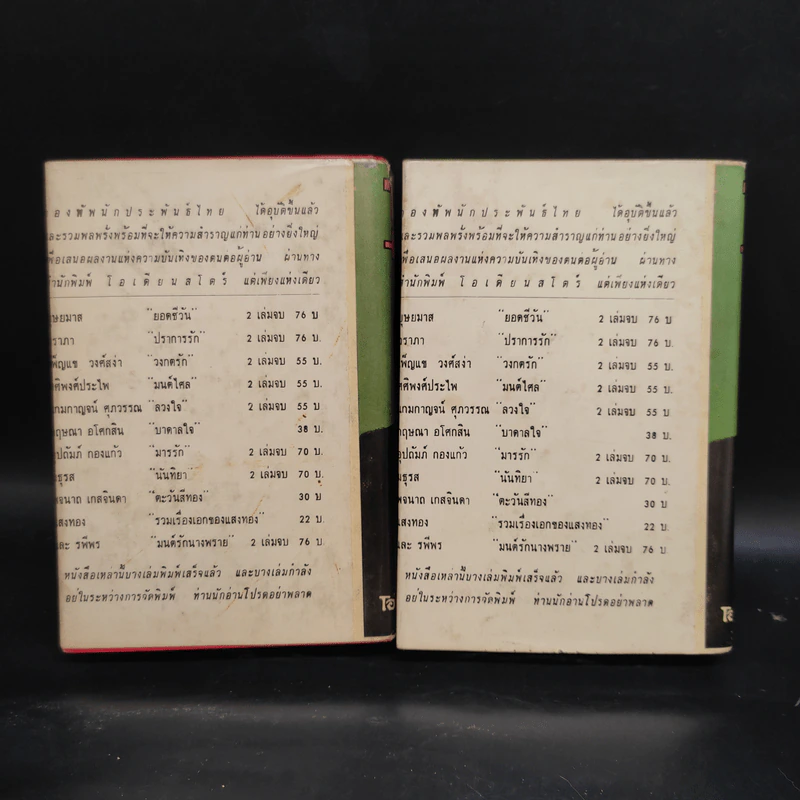 องทัพนักประพันธ์ไทย ได้อุบัติขึ้นแล้ว
และรวมพลพรั่งพร้อมที่จะให้ความสำราญแก่ท่านอย่างยิ่งใหญ่
พื่อเสนอผลงานแห่งความบันเทิงของตนต่อผู้อ่าน ผ่านทาง
สำนักพิมพ์ โอเดียนสโตร์ แต่เพียงแห่งเดียว
บุษยมาส "ยอดชีวัน" 2 เล่มจบ 76 บ
ราภา "ปราการรัก" 2 เล่มจบ 76 บ.
พ็ญแข วงศ์สง่า "วงกตรัก" 2 เล่มจบ 55 บ.
ศิพงศ์ประไพ "มนต์ไศล" 2 เล่มจบ 55 บ.
กมกาญจน์ ศุภวรรณ "ลวงใจ" 2 เล่มจบ 55 บ
กฤษณา อโศกสิน "บาดาลใจ" 38 บ.
อุปถัมภ์ กองแก้ว "มารรัก" 2 เล่มจบ 70 บ.
ธุรส "นันทิยา" 2 เล่มจบ 70 บ.
พจนาถ เกสจินดา "ตะวันสีทอง" 30 บ
แสงทอง "รวมเรื่องเอกของแสงทอง" 22 บ.
และ รพีพร "มนต์รักนางพราย" 2 เล่มจบ 76 บ
หนังสือเหล่านี้บางเล่มพิมพ์เสร็จแล้ว และบางเล่มกำลัง
อยู่ในระหว่างการจัดพิมพ์ ท่านนักอ่านโปรดอย่าพลาด
องทัพนักประพันธ์ไทย ได้อุบัติขึ้นแล้ว
และรวมพลพรั่งพร้อมที่จะให้ความสำราญแก่ท่านอย่างยิ่งใหญ่
พื่อเสนอผลงานแห่งความบันเทิงของตนต่อผู้อ่าน ผ่านทาง
สำนักพิมพ์ โอเดียนสโตร์ แต่เพียงแห่งเดียว
บุษยมาส "ยอดชีวัน" 2 เล่มจบ 76 บ
ราภา "ปราการรัก" 2 เล่มจบ 76 บ.
พ็ญแข วงศ์สง่า "วงกตรัก" 2 เล่มจบ 55 บ.
ศิพงศ์ประไพ "มนต์ไศล" 2 เล่มจบ 55 บ.
กมกาญจน์ ศุภวรรณ "ลวงใจ" 2 เล่มจบ 55 บ
กฤษณา อโศกสิน "บาดาลใจ" 38 บ.
อุปถัมภ์ กองแก้ว "มารรัก" 2 เล่มจบ 70 บ.
ธุรส "นันทิยา" 2 เล่มจบ 70 บ.
พจนาถ เกสจินดา "ตะวันสีทอง" 30 บ
แสงทอง "รวมเรื่องเอกของแสงทอง" 22 บ.
และ รพีพร "มนต์รักนางพราย" 2 เล่มจบ 76 บ
หนังสือเหล่านี้บางเล่มพิมพ์เสร็จแล้ว และบางเล่มกำลัง
อยู่ในระหว่างการจัดพิมพ์ ท่านนักอ่านโปรดอย่าพลาด